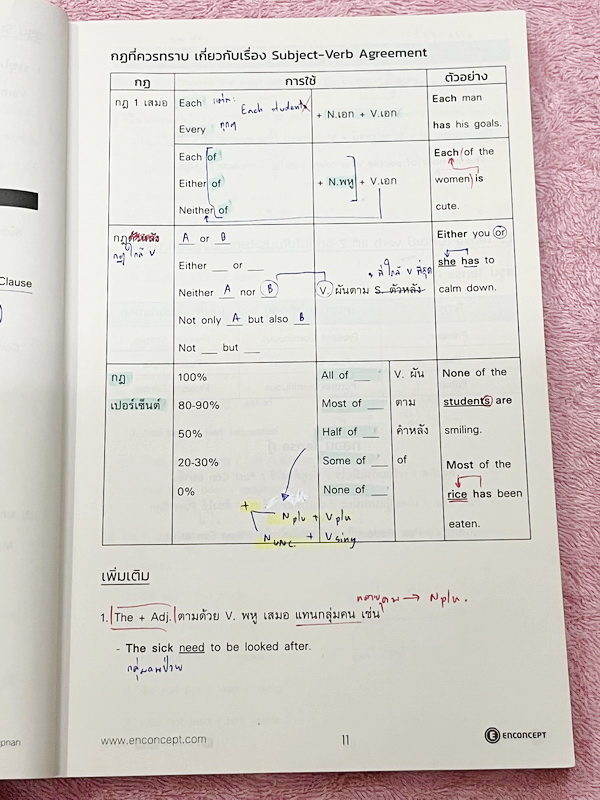 กฎที่ควรทราบ เกี่ยวกับเรื่อง Subject-Verb Agreement
กฎ การใช้ ตัวอย่าง
กฎ 1 เสมอ
Each แต่ละ Each students
Every ทุกๆ
+ N.เอก + V.เอก
Each man
has his goals.
Each of
Either of
Neither of
+ N.พหู + V.เอก
Each of the
women is
cute.
กฎตัวหลัง
กฎใกล้ V
A or B
Either __ or __
Neither A nor B
Not only A but also B
Not __ but __
ที่ใกล้ V ที่สุด
V. ผันตาม S. ตัวหลัง
Either you or
she has to
calm down.
กฎ
เปอร์เซ็นต์
100% All of __
80-90% Most of __
50% Half of __
20-30% Some of __
0% None of __
V. ผัน
ตาม
คำหลัง
of
None of the
students are
smiling.
Most of the
rice has been
eaten.
+ N plu + V plu
N unc. + V sing
เพิ่มเติม
หลายคน → N plu.
1. The + Adj. ตามด้วย V. พหู เสมอ แทนกลุ่มคน เช่น
- The sick need to be looked after.
กลุ่มคนป่วย
Clause
pnan
www.enconcept.com 11 E ENCONCEPT